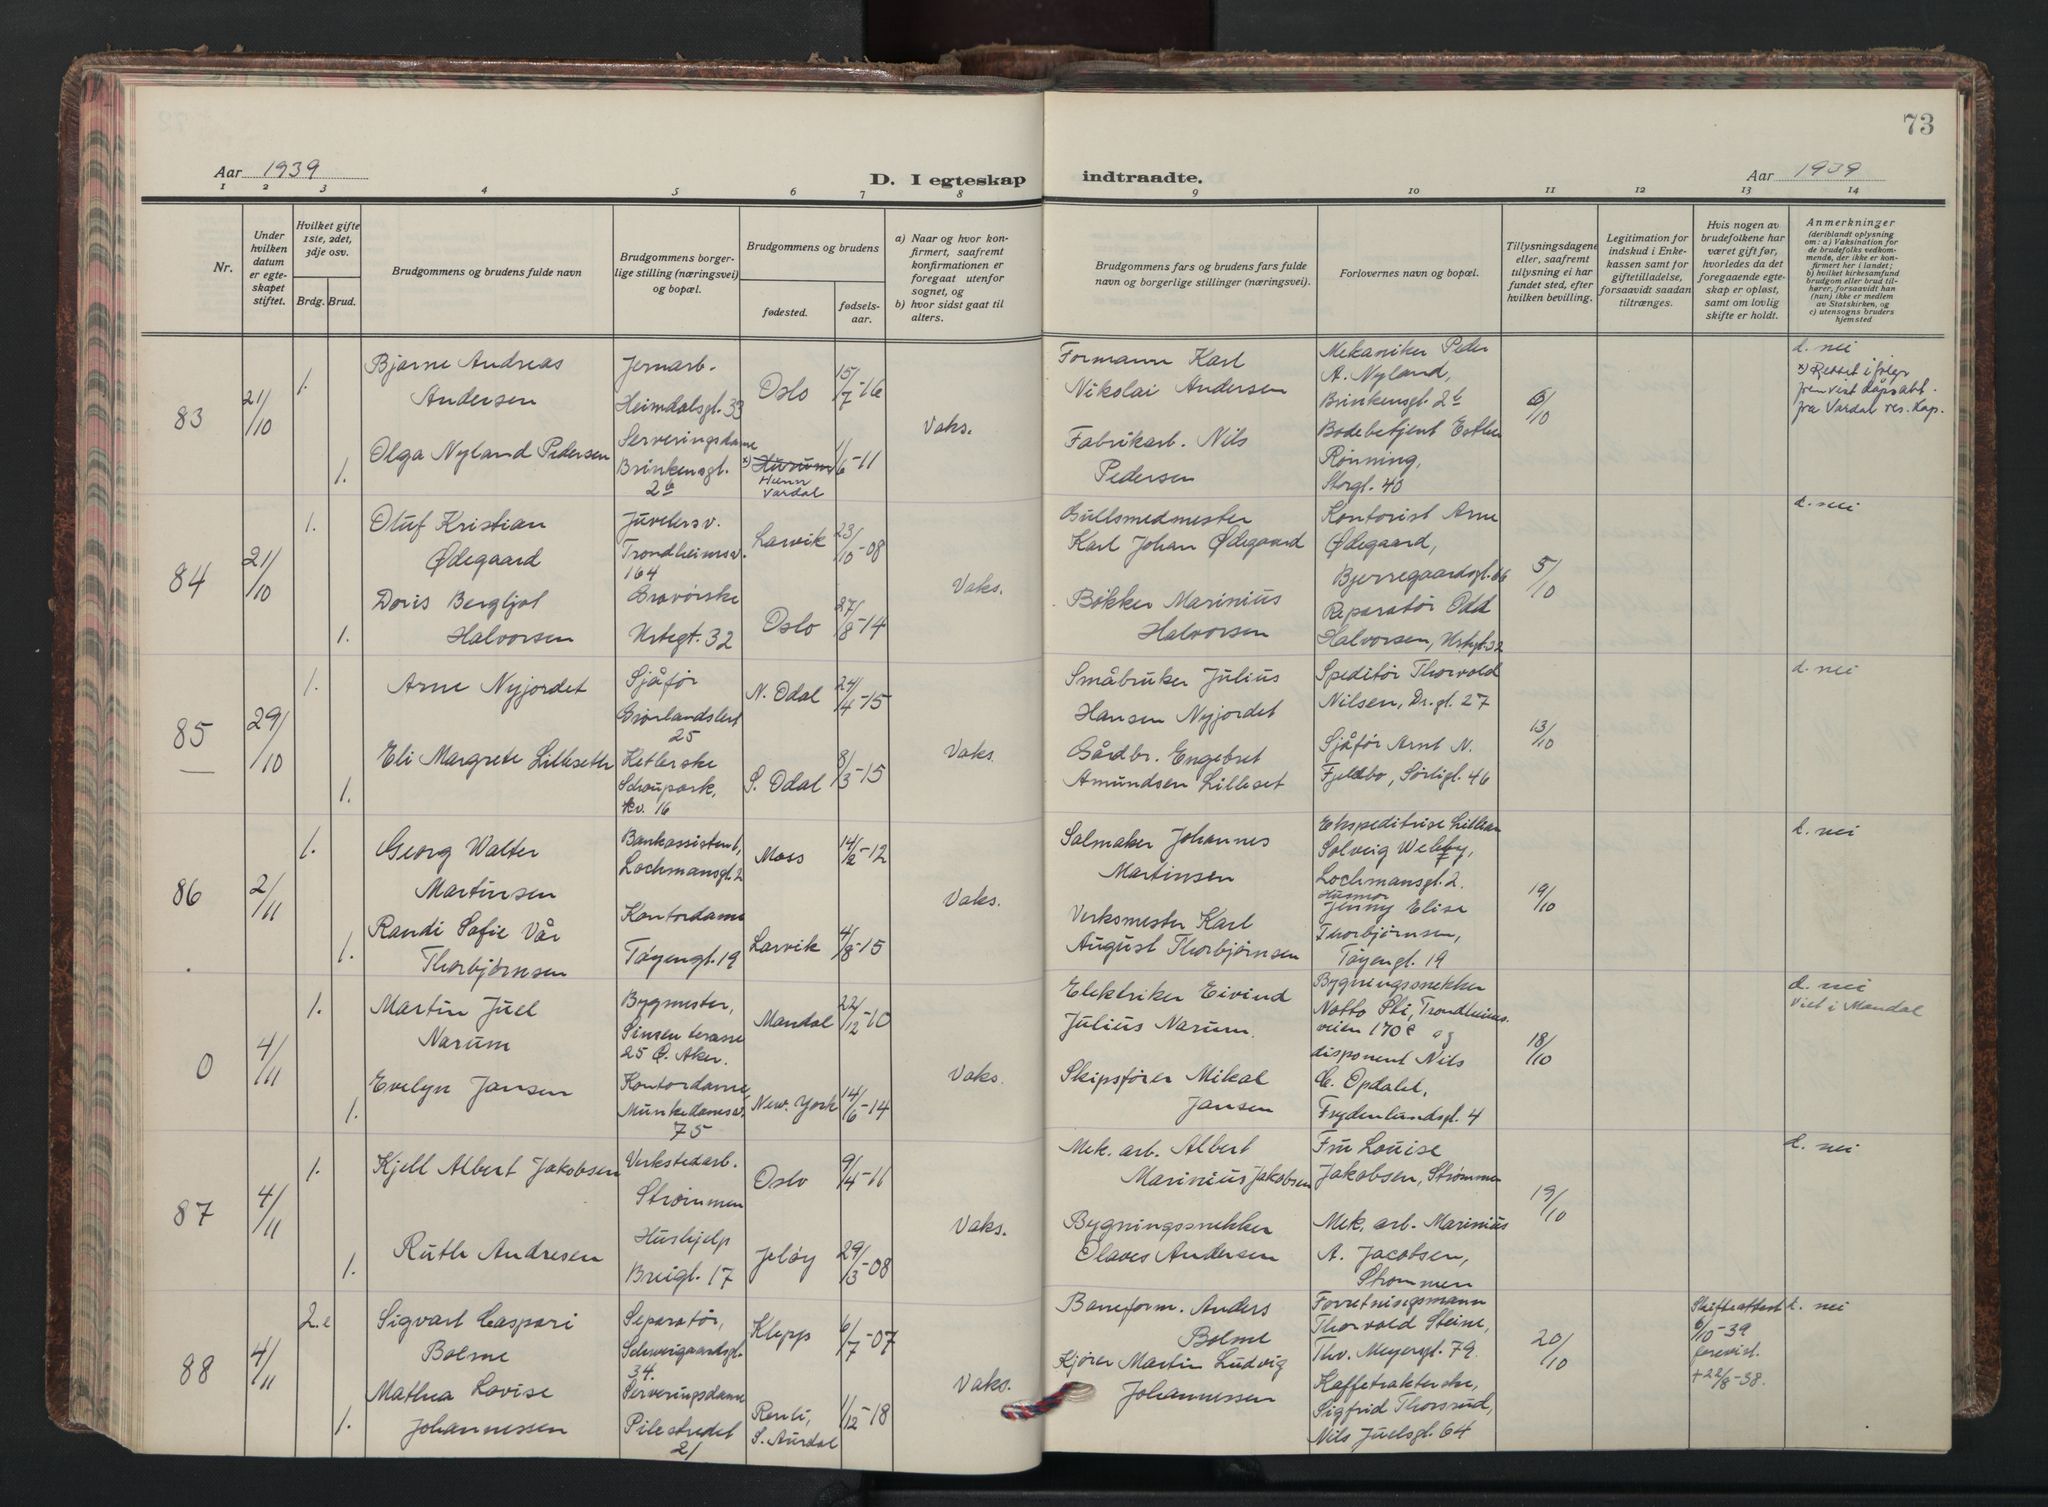 73
Aar 1939
D. I egteskap indtraadte.
Aar 1939
1 2 3 4 5 6 7 8 9 10 11 12 13 14
Nr.
Under hvilken datum er egteskapet stiftet.
Hvilket gifte 1ste, 2det, 3dje osv.
Brdg. Brud.
Brudgommens og brudens fulde navn
Brudgommens borgerlige stilling (næringsvei) og bopæl.
Brudgommens og brudens
fødested.
fødselsaar.
a) Naar og hvor konfirmert, saafremt konfirmationen er foregaat utenfor sognet, og
b) hvor sidst gaat til alters.
Brudgommens fars og brudens fars fulde navn og borgerlige stillinger (næringsvei).
Forlovernes navn og bopæl.
Tillysningsdagene eller, saafremt tillysning ei har fundet sted, efter hvilken bevilling.
Legitimation for indskud i Enkekassen samt for giftetilladelse, forsaavidt saadan tiltrænges.
Hvis nogen av brudefolkene har været gift før, hvorledes da det foregaaende egteskap er opløst, samt om lovlig skifte er holdt.
Anmerkninger
(deriblandt oplysning om: a) Vaksination for de brudefolks vedkommende, der ikke er konfirmert her i landet; b) hvilket kirkesamfund brudgom eller brud tilhører, forsaavidt han (hun) ikke er medlem av Statskirken, og c) utensogns bruders hjemsted
83
21/10
1.
Bjarne Andreas
Andersen
Jernarb.
Heimdalsgt. 33
Oslo
15/7-16
1.
Olga Nyland Pedersen
Serveringsdame
Brinkensgt.
2b
x) Hurum
Hunn
Vardal
1/6-11
Vaks.
Formann Karl
Nikolai Andersen
Fabrikarb. Nils
Pedersen
Mekaniker Peder
A. Nyland,
Brinkensgt. 2b
Bodebetjent Esther
Rønning,
Storgt. 40
6/10
d. nei
x) Rettet i følge
frem vist dåpsatt.
fra Vardal res. kap.
84
21/10
1.
Oluf Kristian
Ødegaard
Juvelersv.
Trondheimsv.
164
Larvik
23/10-08
1.
Doris Bergljot
Halvorsen
Gravørske
Urtegt. 32
Oslo
27/8-14
Vaks.
Gullsmedmester
Karl Johan Ødegaard
Bøkker Marinius
Halvorsen
Kontorist Arne
Ødegaard,
Bjerregaardsgt. 66
Reparatør Odd
Halvorsen, Urtegt. 32
5/10
d. nei
85
29/10
1.
Arne Nyjordet
Sjåfør
Grønlandsleret
25
N. Odal
24/4-15
1.
Eli Margrete Lilleseter
Ketlerske
Schouspark,
kv. 16
S. Odal
8/3-15
Vaks.
Småbruker Julius
Hansen Nyjordet
Gårdbr. Engebret
Amundsen Lilleset
Speditør Thorvald
Nilsen, Dr. gt. 27
Sjåfør Arnt N.
Fjeldbo, Sørligt. 46
13/10
d. nei
86
2/11
1.
Georg Walter
Martinsen
Bankassistent,
Lochmansgt. 2
Moss
14/2-12
1.
Randi Sofie Vår
Thorbjørnsen
Kontordame
Tøyengt. 19
Larvik
4/8-15
Vaks.
Salmaker Johannes
Martinsen
Verksmester Karl
August Thorbjørnsen
Ekspeditrise Lillian
Solveig Welby,
Lochmansgt. 2.
Husmor
Jenny Elise
Thorbjørnsen,
Tøyengt. 19
19/10
d. nei
0
4/11
1.
Martin Juel
Narum
Bygmester,
Sinsen terasse
25 Ø. Aker.
Mandal
22/12-10
1.
Evelyn Jansen
Kontordame,
Munkedamsv.
75
New. York
14/6-14
Vaks.
Elektriker Eivind
Julius Narum.
Skipsfører Mikal
Jansen
Bygningssnekker
Notto Sti, Trondheims-
veien 170c og
disponent Nils
C. Opdalet,
Frydenlundsgt. 4
18/10
d. nei
Viet i Mandal
87
4/11
1.
Kjell Albert Jakobsen
Verkstedarb.
Strømmen
Oslo
9/4-11
1.
Ruth Andresen
Hushjelp
Breigt. 17
Jeløy
29/3-08
Vaks.
Mek. arb. Albert
Marinius Jakobsen
Bygningssnekker
Olaves Andersen
Fru Louise
Jakobsen, Strømmen
Mek. arb. Marinius
A. Jacobsen,
Strømmen
19/10
d. nei
88
4/11
2.e
Sigvart Caspari
Bolme
Separatør,
Schweigaardsgt.
34.
Klepp
6/7-07
1.
Mathea Lovise
Johannessen
Serveringsdame
Pilestredet
21
Renli,
S. Aurdal
1/12-18
Vaks.
Baneform. Anders
Bolme
Kjører Martin Ludvig
Johannessen
Forretningsmann
Thorvald Steine,
Thv. Meyersgt. 79.
Kaffetrakterske,
Sigfrid Thorsrud,
Nils Juelsgt. 64
20/10
Skifteattest
6/10-39
forevist.
+ 22/8-38.
d. nei